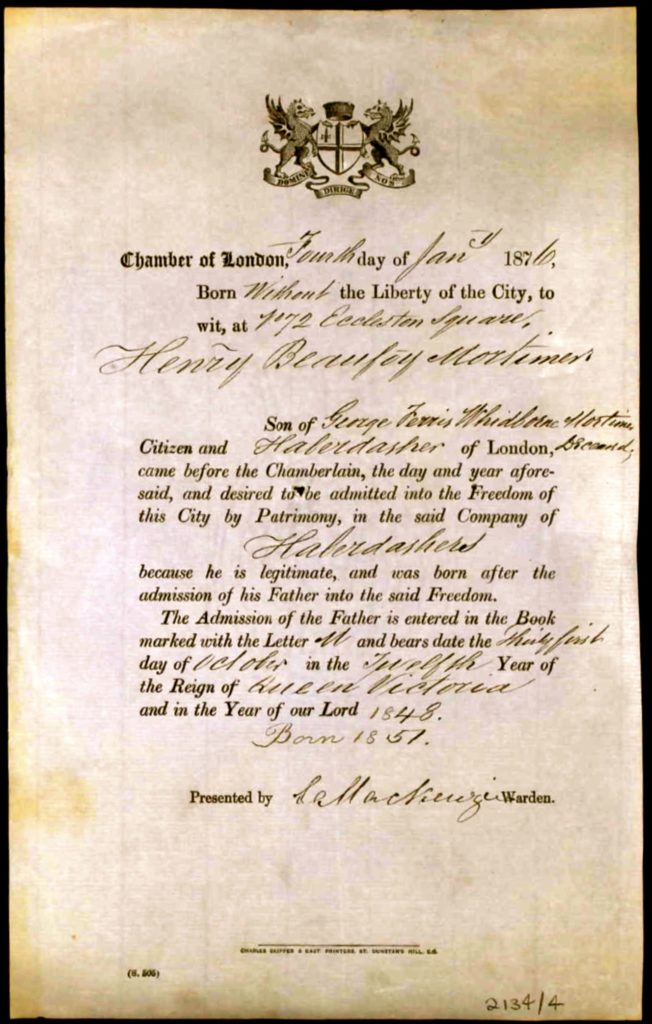 DOMINE DIRIGE NOS
Chamber of London, Fourth day of Jany 1876,
Born Without the Liberty of the City, to
wit, at No 72 Eccleston Square,
Henry Beaufoy Mortimer
Son of George Ferris Whidborne Mortimer
Citizen and Haberdasher of London, Deceased,
came before the Chamberlain, the day and year afore-
said, and desired to be admitted into the Freedom of
this City by Patrimony, in the said Company of
Haberdashers
because he is legitimate, and was born after the
admission of his Father into the said Freedom.
The Admission of the Father is entered in the Book
marked with the Letter M and bears date the thirty first
day of October in the Twelfth Year of
the Reign of Queen Victoria
and in the Year of our Lord 1848.
Born 1851.
Presented by MacKenzie Warden.
CHARLES SKIPPER & EAST, PRINTERS, ST. DUNSTAN'S HILL, E.C.
(S. 505)
2134/4